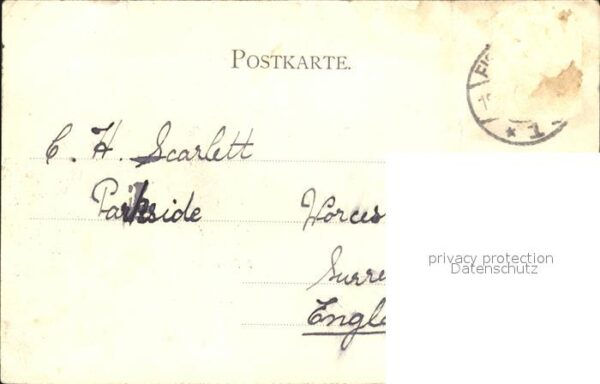 POSTKARTE.
C. H. Scarlett
Parkside
Worces
Surre
Engla
privacy protection
Datenschutz
* 1